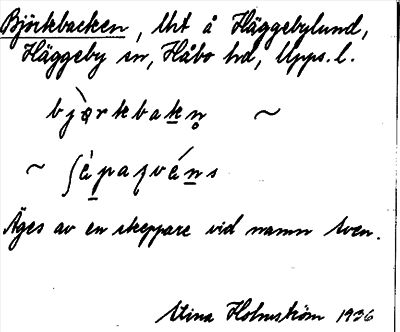 Björkbacken, lht å Häggebylund,
Häggeby sn, Håbo hd, Upps. l.
bjær̀kbakn̥ ~
~ ʃæ̀paʃvéns
Äges av en skeppare vid namn Sven.
Stina Holmström 1936